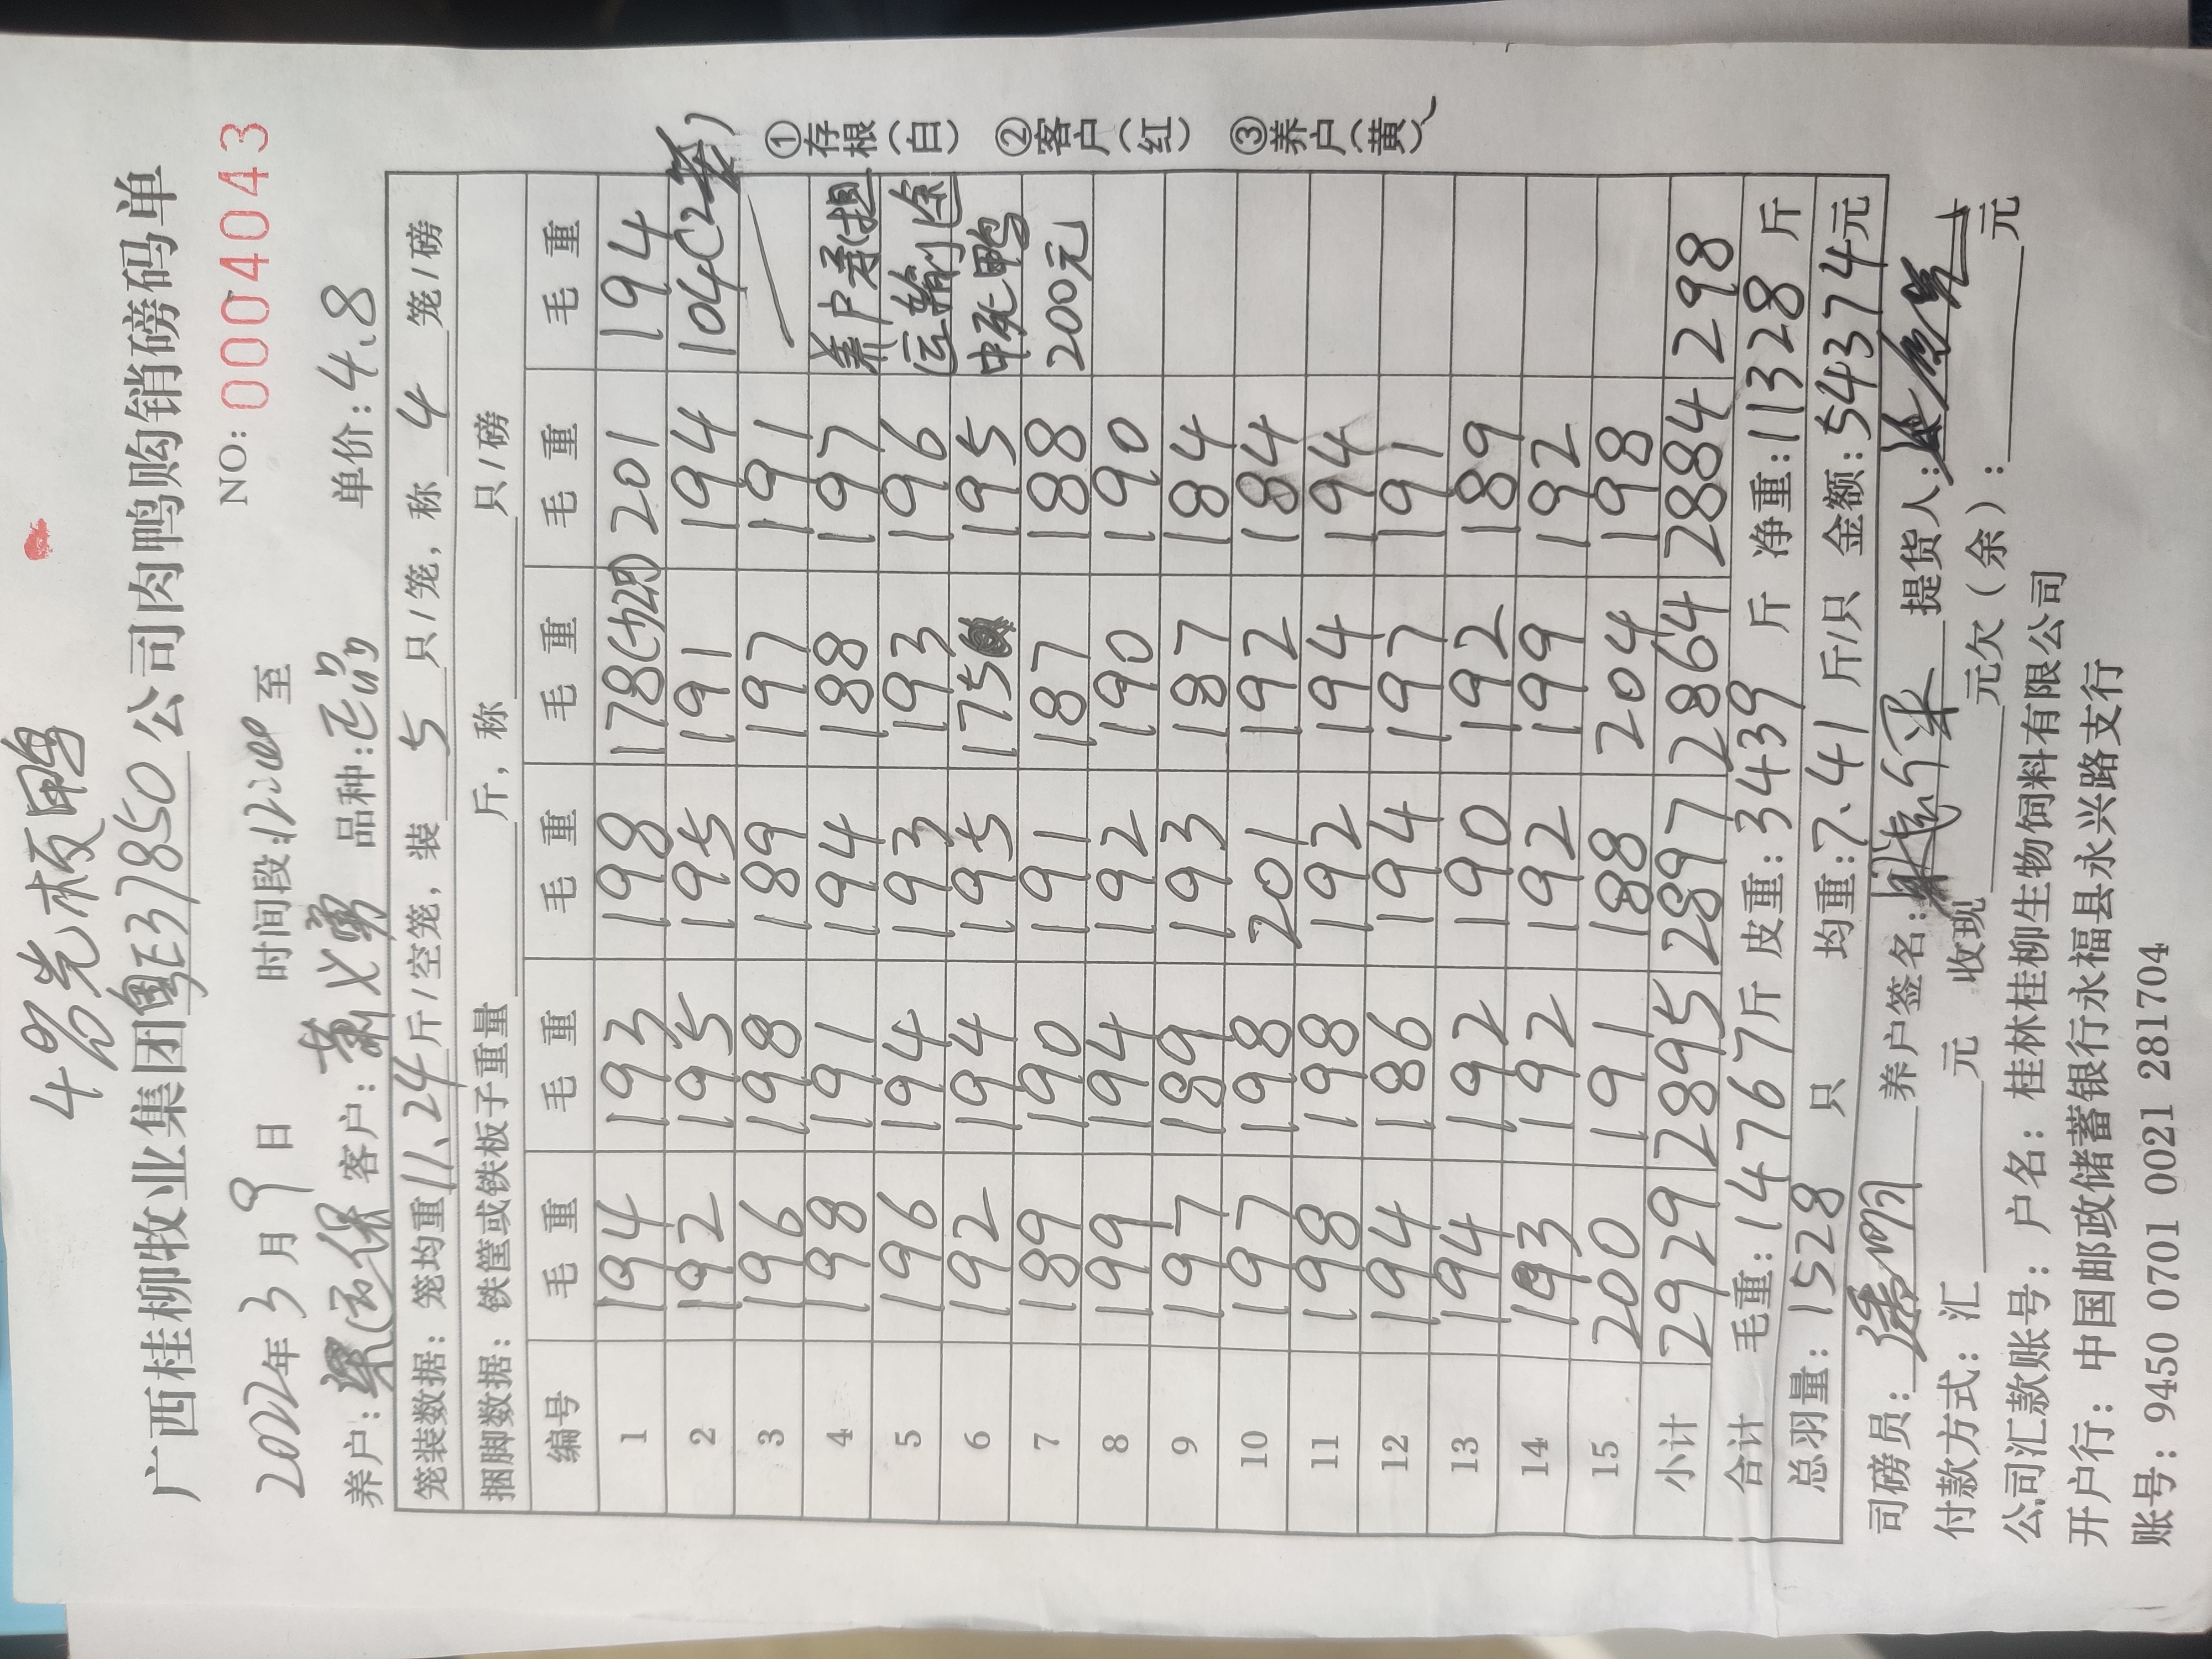 4%光板鸭
广西桂柳牧业集团粤E37850公司肉鸭购销磅码单
NO: 0004043
2022年3月9日 时间段:12:00至
养户: 客户: 品种: 单价:4.8
笼装数据: 笼均重11.24斤/空笼, 装5只/笼, 称4笼/磅
捆脚数据: 铁筐或铁板子重量 斤, 称 只/磅
编号 毛重 毛重 毛重 毛重 毛重 毛重
1 194 193 198 178 201 194
2 192 195 195 191 194 104(2笼)
3 196 198 189 197 191
4 198 191 194 188 197 养户承担
5 196 194 193 193 196 运输途
6 192 194 195 175 195 中死鸭
7 189 190 191 187 188 200元
8 199 194 192 190 190
9 197 189 193 187 184
10 197 198 201 192 184
11 198 198 192 194 194
12 194 186 194 197 191
13 194 192 190 192 189
14 193 192 192 199 192
15 200 191 188 204 198
小计 2929 2895 2897 2864 2884 298
合计 毛重:14767斤 皮重:3439斤 净重:11328斤
总羽量:1528只 均重:7.41斤/只 金额:54374元
司磅员: 养户签名: 提货人:
付款方式: 汇 元 收现 元欠(余): 元
公司汇款账号: 户名: 桂林桂柳生物饲料有限公司
开户行: 中国邮政储蓄银行永福县永兴路支行
账号: 9450 0701 0021 281704
①存根(白) ②客户(红) ③养户(黄)